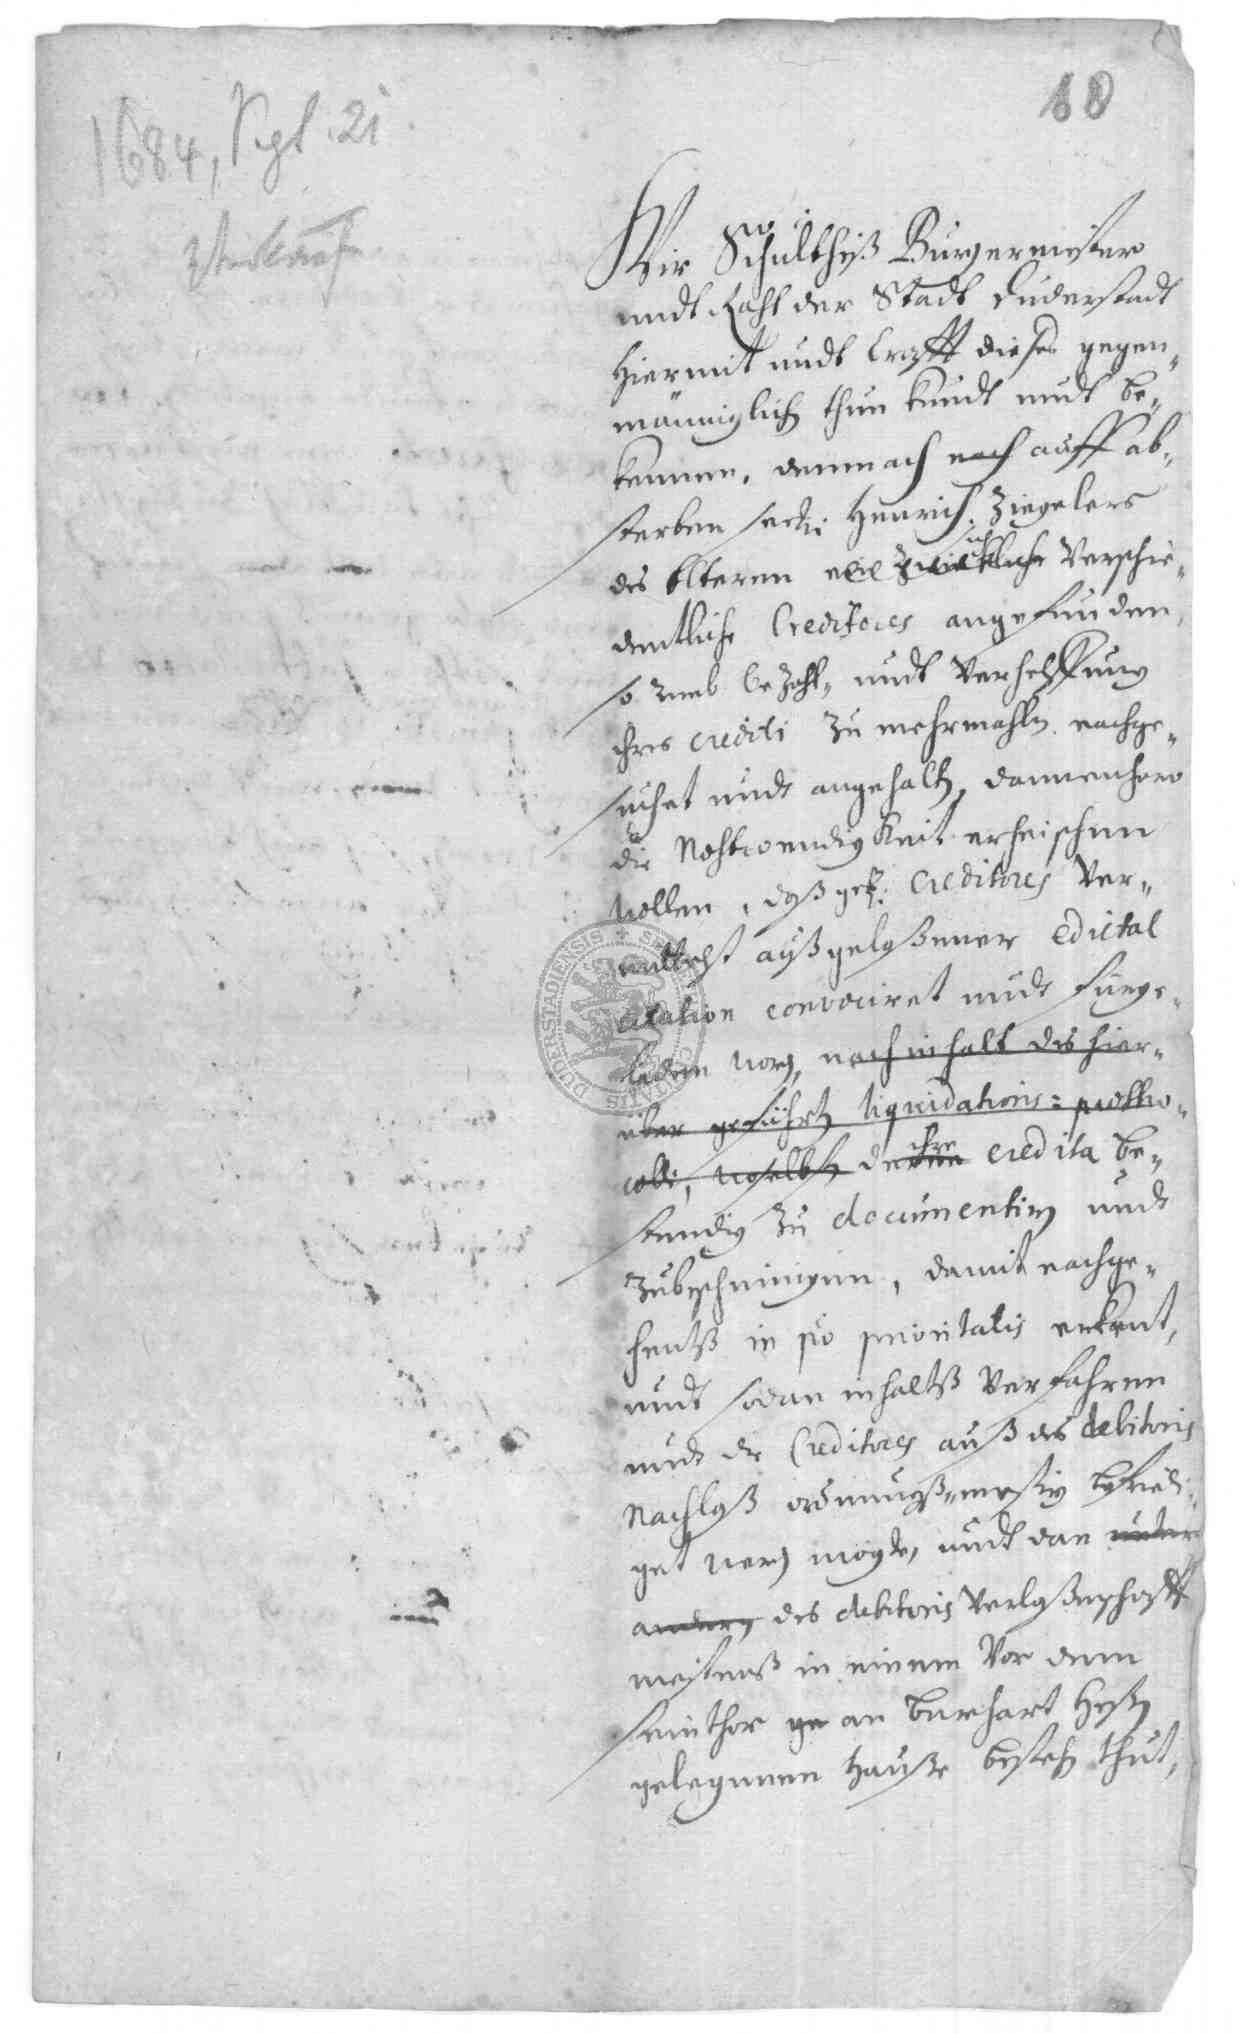 10
1684, Sept. 21
Verkauf
Wir Schultheß Bürgermeister
undt Raht der Stadt Duderstadt
hiermit undt Crafft dieses gegen
männiglich thun kundt undt be-
kennen, demnach nach auff ab-
sterben Henrich Ziegelers
des Elteren sich verschie-
dentliche Creditores angefunden,
so umb bezahl- undt Verhelffung
ihres crediti zu mehrmahln nachge-
suchet undt angehaltn, dannenhero
die Nohtwendigkeit erheischen
wollen, daß Creditores ver-
mittelst außgelaßener edictal
citation convociret undt fürge-
laden worden, nach inhalt des hier-
über geführten liquidations-protho-
colli, woselbsten ihre credita be-
stendig zu documentirn undt
zubescheinigen, damit nachge-
hents in pto prioritatis erkant,
undt sodan inhalts verfahren
undt die Creditores auß des debitoris
Nachlaß ordnungß-meßig befriedi-
get werden mögte, undt dan unter
andern des debitoris Verlaßenschafft
meistens in einem vor dem
Steinthor an Burchart Heßen
gelegenem Hause bestehen thut,
DUDERSTADIENSIS